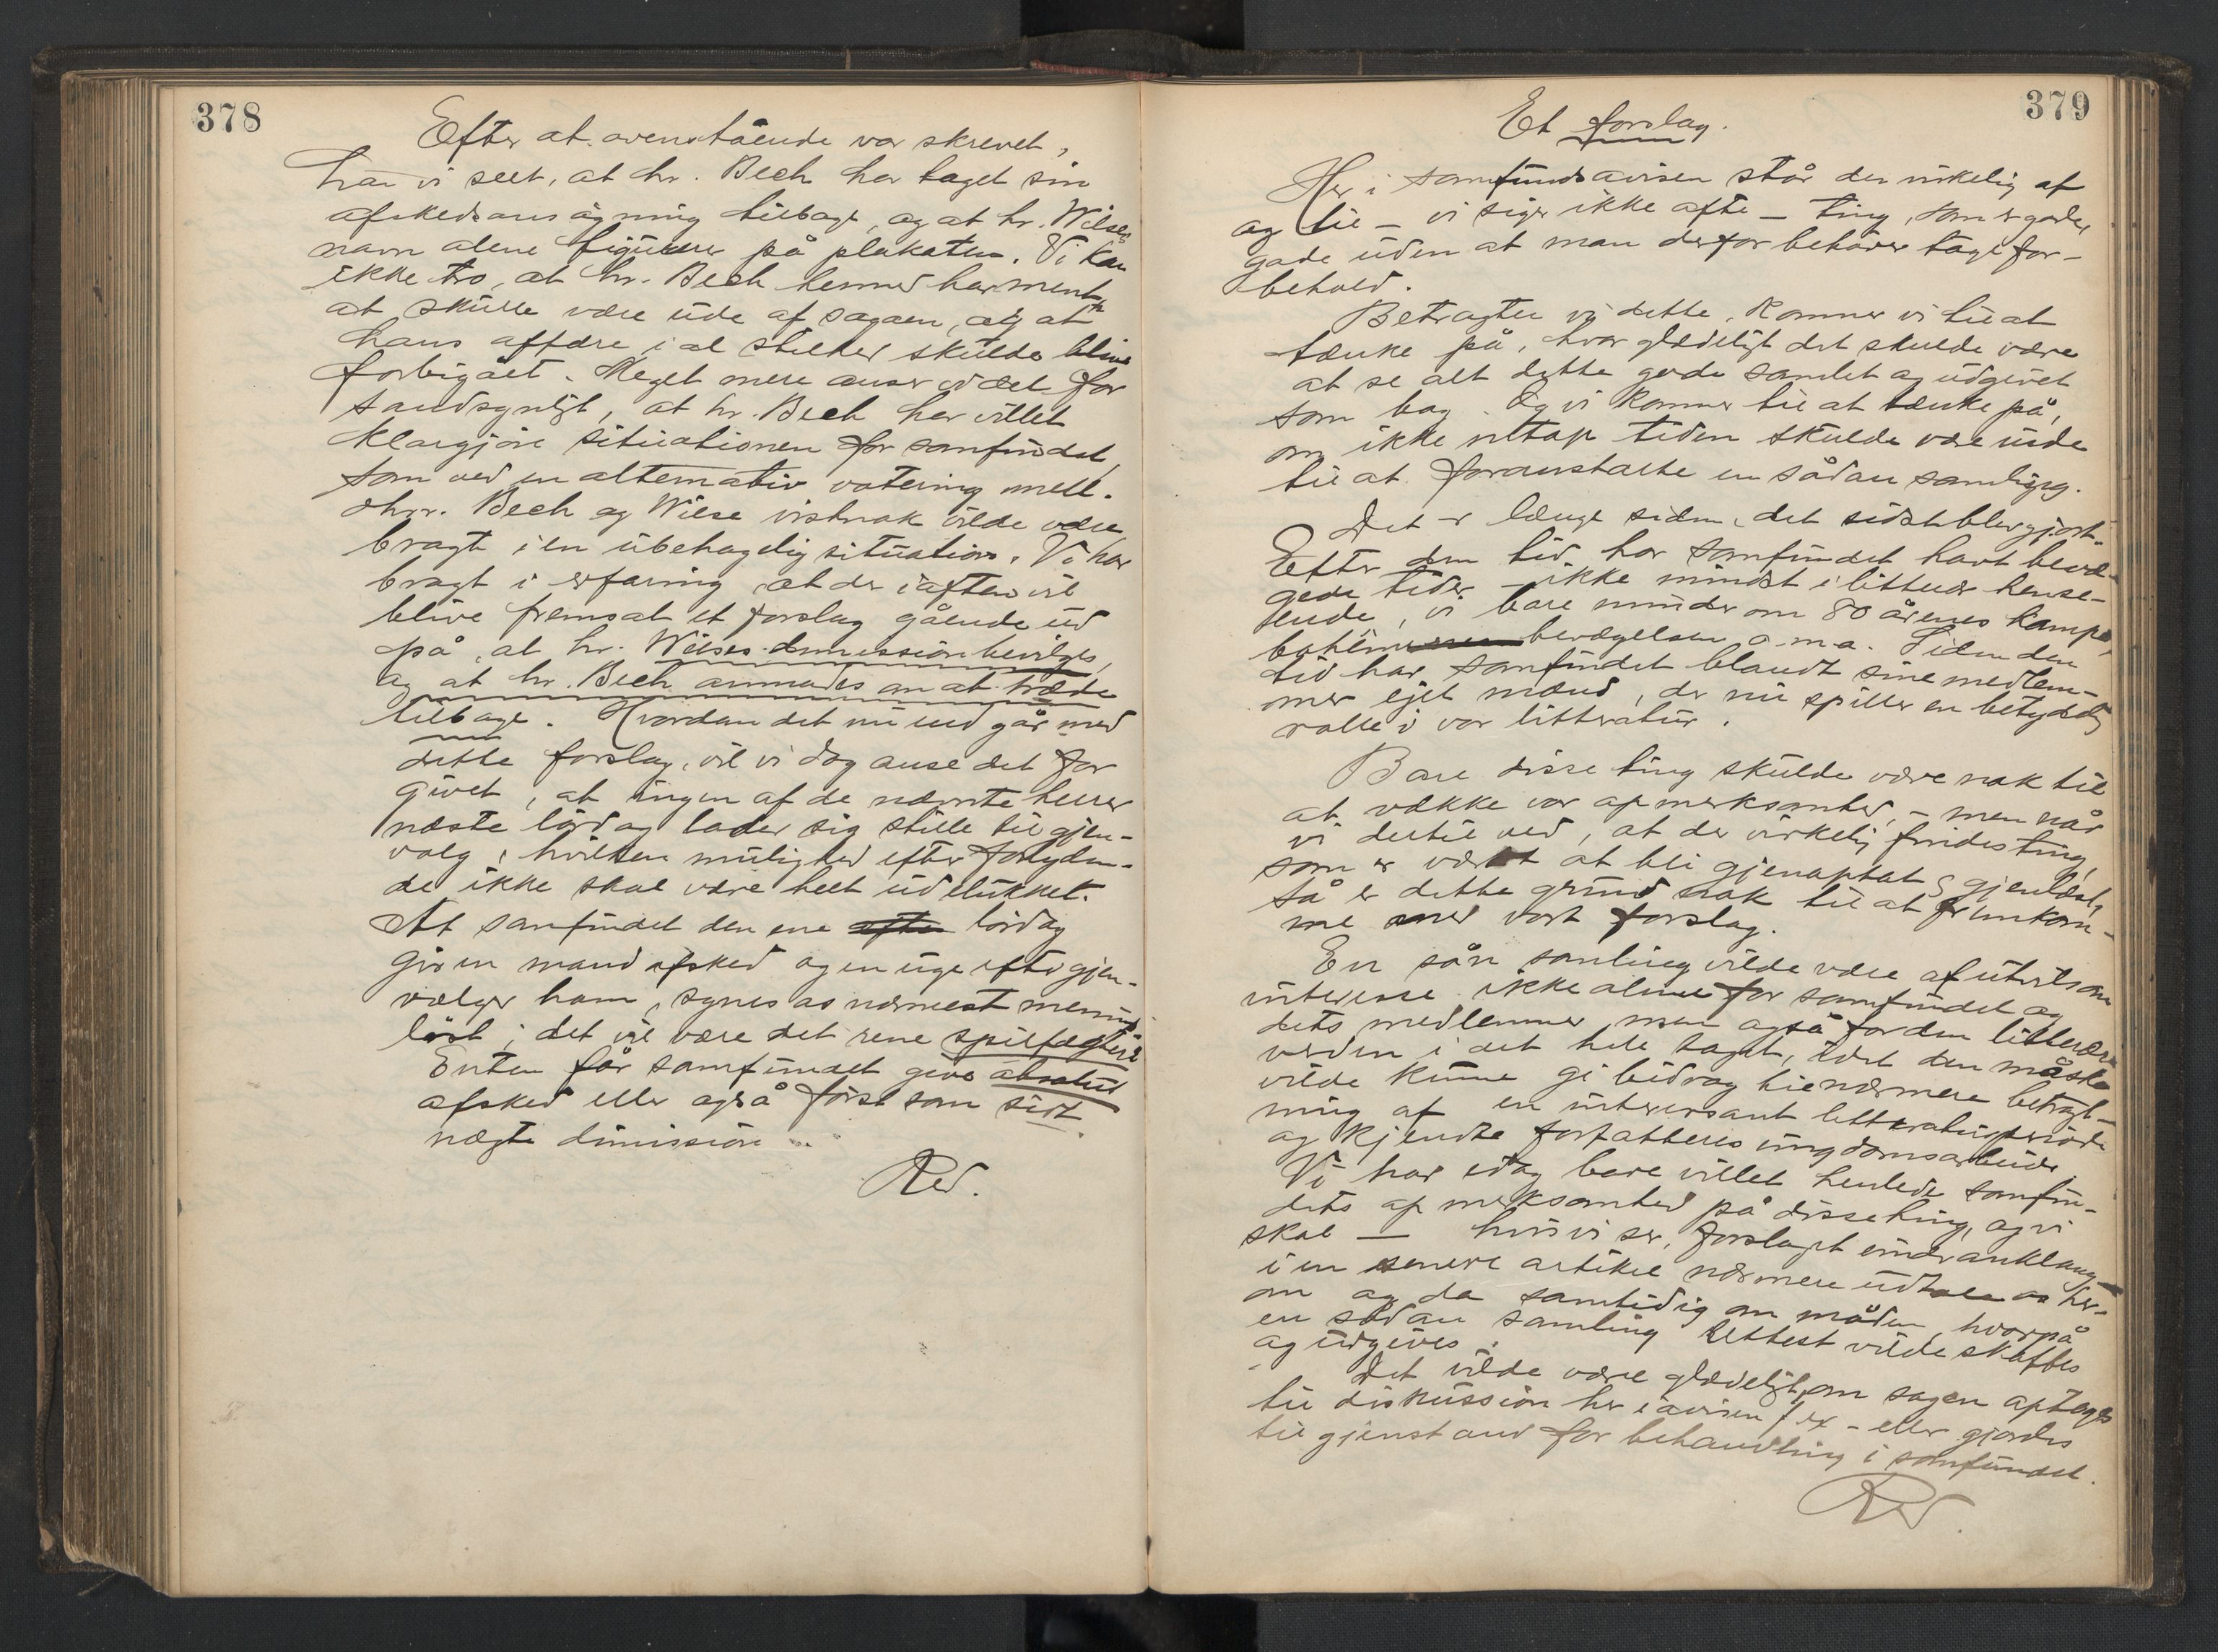 378
Efter at ovenstående var skrevet,
har vi seet, at hr. Bech har taget sin
afskedsansøgning tilbage, og at hr. Wilses
navn alene figurerer på plakaten. Vi kan
ikke tro, at hr. Bech hermed har ment
at skulle være ude af sagaen, og at
hans affære i al stilhed skulde blive
forbigået. Meget mere anser vi det for
sandsynligt, at hr. Bech har villet
klargjøre situationen for samfundet,
som ved en alternativ votering mell.
dhrr. Bech og Wilse vistnok vilde være
bragt i en ubehagelig situation. Vi har
bragt i erfaring at der iaften vil
blive fremsat et forslag gående ud
på, at hr. Wilses dimission bevilges,
og at hr. Bech anmodes om at træde
tilbage. Hvordan det nu end går med
dette forslag, vil vi dog anse det for
givet, at ingen af de nævnte herrer
næste lørdag lader sig stille til gjen-
valg, hvilken mulighed efter forlyden-
de ikke skal være helt udelukket.
At samfundet den ene aften lørdag
gir en mand afsked og en uge efter gjen-
vælger ham, synes os nærmest menings-
løst; det vil være det rene spilfægteri
Enten får samfundet give absolut
afsked eller også først som sidst
nægte dimission.
Red.
379
Et forslag.
Her i samfundsavisen står der virkelig af
og til – vi siger ikke ofte – ting, som er gode,
gode uden at man derfor behøver tage for-
behold.
Betragter vi dette, kommer vi til at
tænke på, hvor glædeligt det skulde være
at se alt dette gode samlet og udgivet
som bog. Og vi kommer til at tænke på,
om ikke netop tiden skulde være inde
til at foranstalte en sådan samling.
Det er længe siden, det sidst blev gjort.
Efter den tid har samfundet havt bevæ-
gede tider – ikke mindst i litterær hense-
ende, vi bare minder om 80 årenes kampe,
bohêmbevægelsen o. m. a. Siden den
tid har samfundet blandt sine medlem-
mer ejet mænd, der nu spiller en betydelig
rolle i vor litteratur.
Bare disse ting skulde være nok til
at vække vor opmerksomhed, – men når
vi dertil ved, at der virkelig findes ting,
som er værdt at bli gjenoptat & gjenlæst,
så er dette grund nok til at fremkom-
me med vort forslag.
En sån samling vilde være af utvilsom
interesse ikke alene for samfundet og
dets medlemmer, men også for den litterære
verden i det hele taget, idet den måske
vilde kunne gi bidrag til nærmere betragt-
ning af en interessant litteraturperiode
og kjendte forfatteres ungdomsarbeide.
Vi har idag bare villet henlede samfun-
dets opmerksomhed på disse ting, og vi
skal – hvis vi ser, forslaget vinder anklang –
i en senere artikel nærmere udtale os her-
om og da samtidig om måden, hvorpå
en sådan samling lettest vilde skaffes
og udgives.
Det vilde være glædeligt, om sagen optoges
til diskussion her i avisen f. ex – eller gjordes
til gjenstand for behandling i samfundet.
Red.